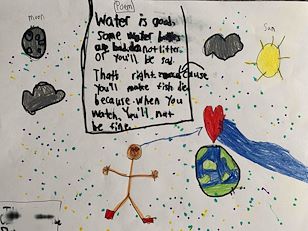 Moon
Poem
Sun
Water is good
some water bottles
are bad. do not litter
or you'll be sad.
That's right cause
you'll make fish die
because when you
watch. You'll not
be fine.